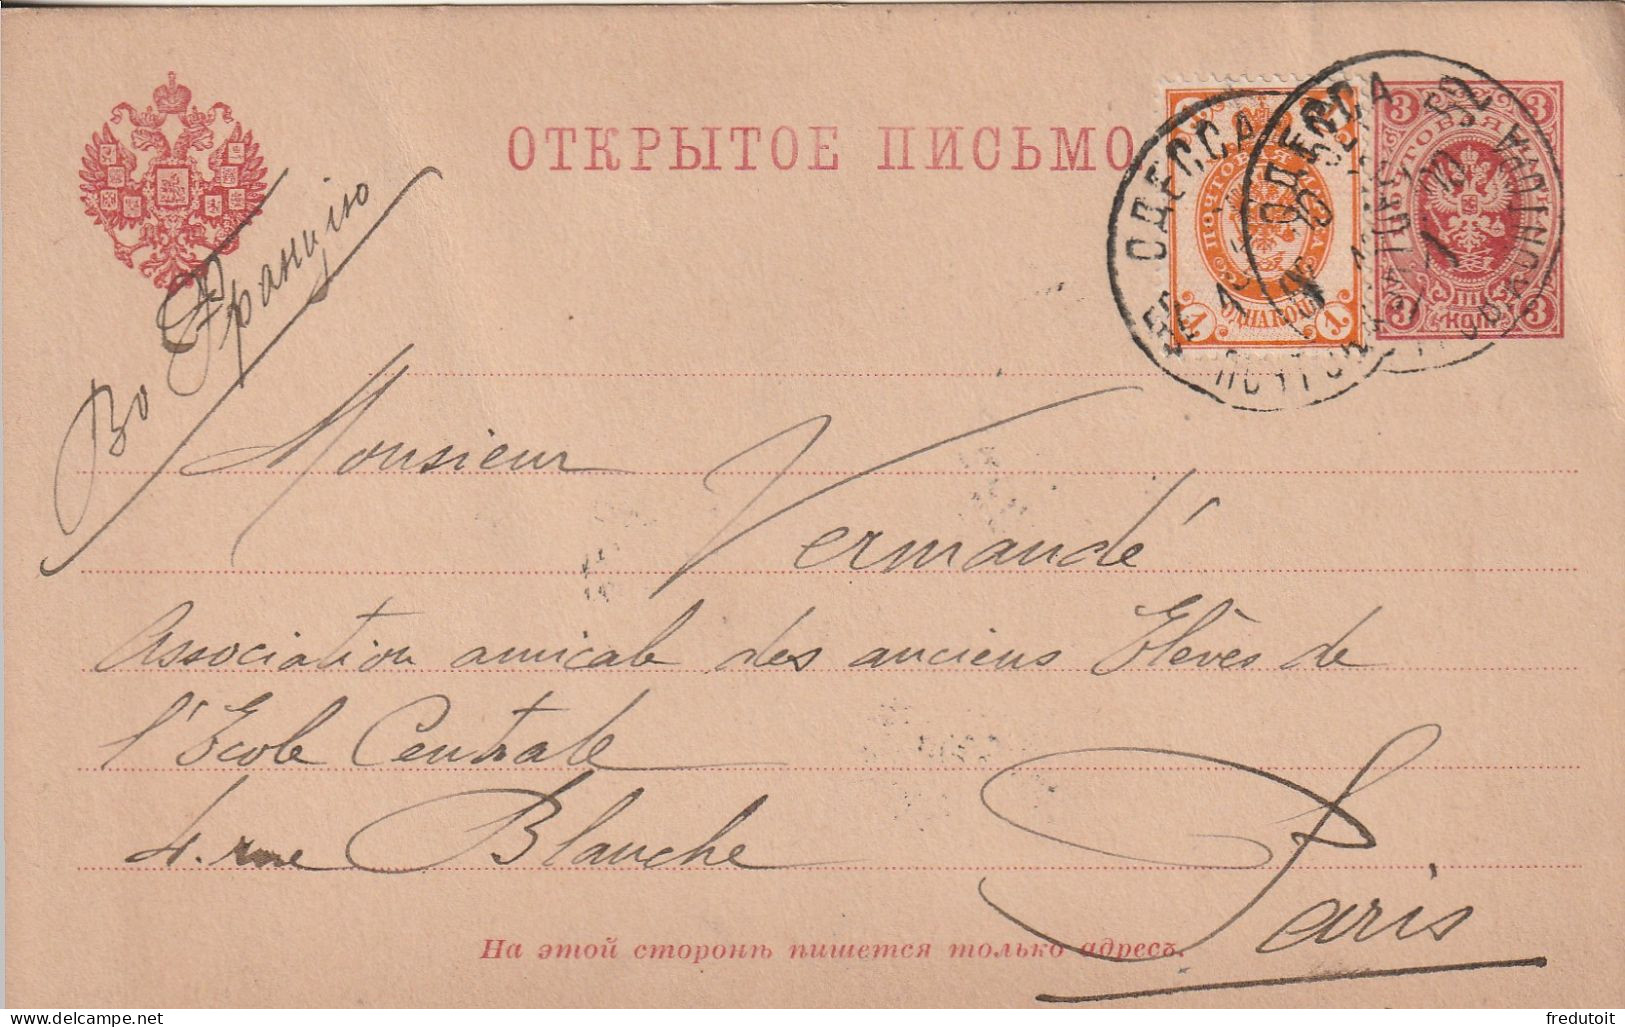 ОТКРЫТОЕ ПИСЬМО
Во Францію
ОДЕССА
ОДЕССА
ПОЧТОВАЯ МАРКА
1 1
3 3
3 КОП. 3
Monsieur
Vermandé
Association amicale des anciens Elèves de
l'Ecole Centrale
4. rue Blanche
Paris
На этой сторонѣ пишется только адресъ.
© fredutoit